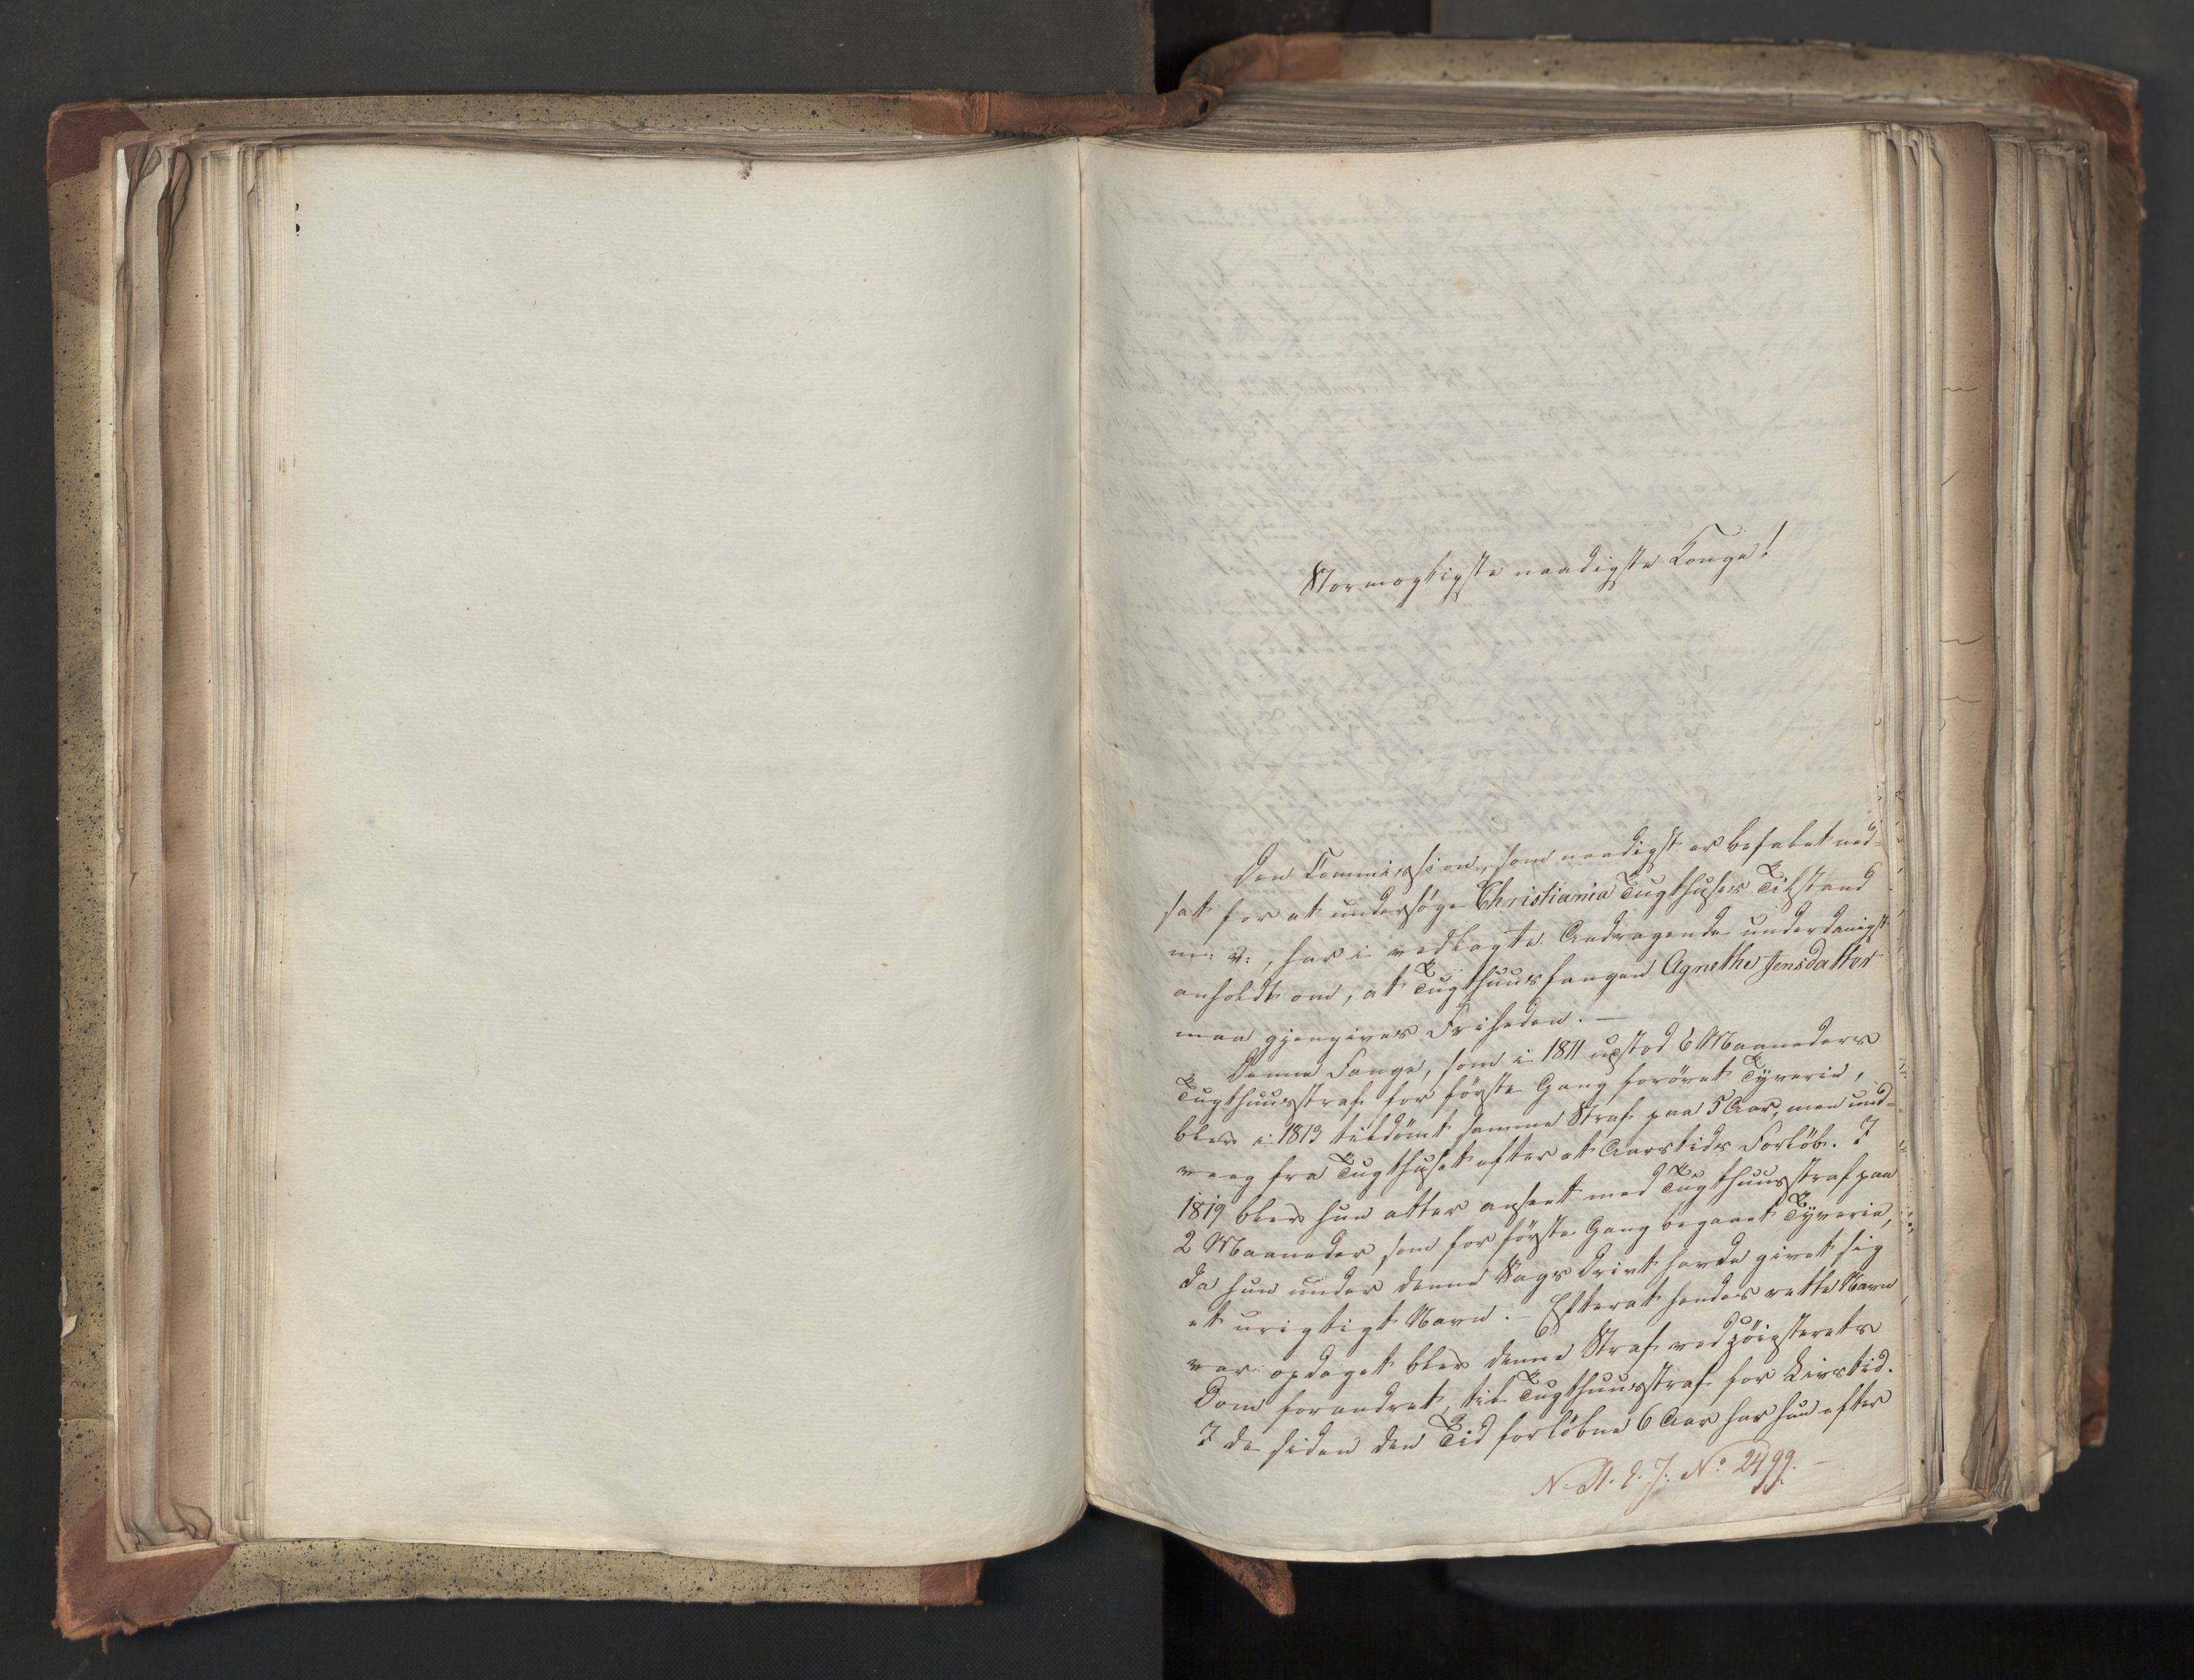 Stormægtigste naadigste Konge!
Den Commission, som naadigst er befalet ned-
sat for at undersøge Christiania Tugthuses Tilstand
m: v:, har i vedlagte Andragende underdanigst
anholdt om, at Tugthuusfangen Agnethe Jensdatter
maa gjengives Friheden. —
Denne Fange, som i 1811 udstod 6 Maaneders
Tugthuusstraf for første Gang forøvet Tyverie,
blev i 1813 tildømt samme Straf paa 5 Aar, men und-
veeg fra Tugthuset efter et Aarstids Forløb. I
1819 blev hun atter anseet med Tugthuusstraf paa
2 Maaneder som for første Gang begaaet Tyverie,
da hun under denne Sags Drivt havde givet sig
et urigtigt Navn. — Efterat hendes rette Navn
var opdaget blev denne Straf ved Høiesterets
Dom forandret til Tugthuusstraf for Livstid.
I de siden den Tid forløbne 6 Aar har hun efter
N. St. E. J. No 2499. —